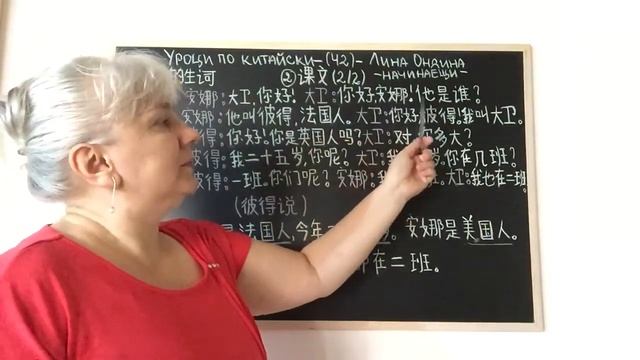 Уроци по китайски-(42)-Лина Ондина
的生词 ②课文(2/2) -начинаещи-
安娜:大卫,你好! 大卫:你好,安娜!他是谁?
安娜:他叫彼得,法国人。大卫:你好,彼得!我叫大卫。
彼得:你好!你是英国人吗?大卫:对 你多大?
彼得:我二十五岁,你呢?大卫:我 岁,你在几班?
彼得:一班。你们呢?安娜:我 大卫:我也在二班。
(彼得说)
是法国人,今年 安娜是美国人。
在二班。